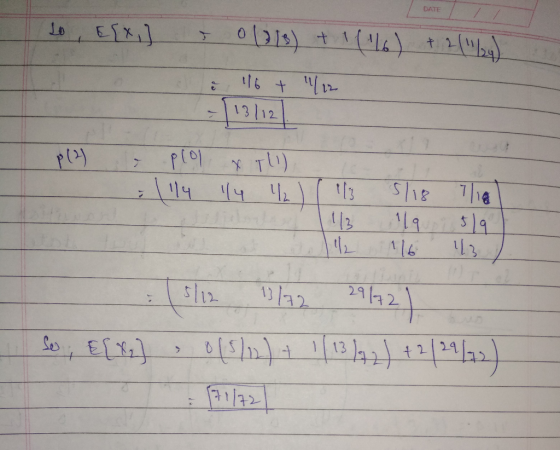 DATE
So, E[X₁] = 0(3/8) + 1(1/6) + 2(11/24)
= 1/6 + 11/12
= 13/12
p(2) = p(0) x T(1)
= (1/4 1/4 1/2) (1/3 5/18 7/18
1/3 1/9 5/9
1/2 1/6 1/3)
= (5/12 13/72 29/72)
So, E[X₂] = 0(5/12) + 1(13/72) + 2(29/72)
= 71/72